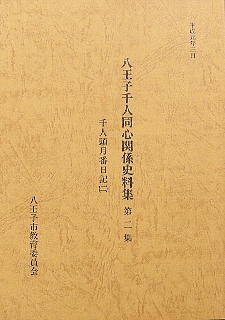 平成元年三月
八王子千人同心関係史料集 第二集
千人頭月番日記(二)
八王子市教育委員会